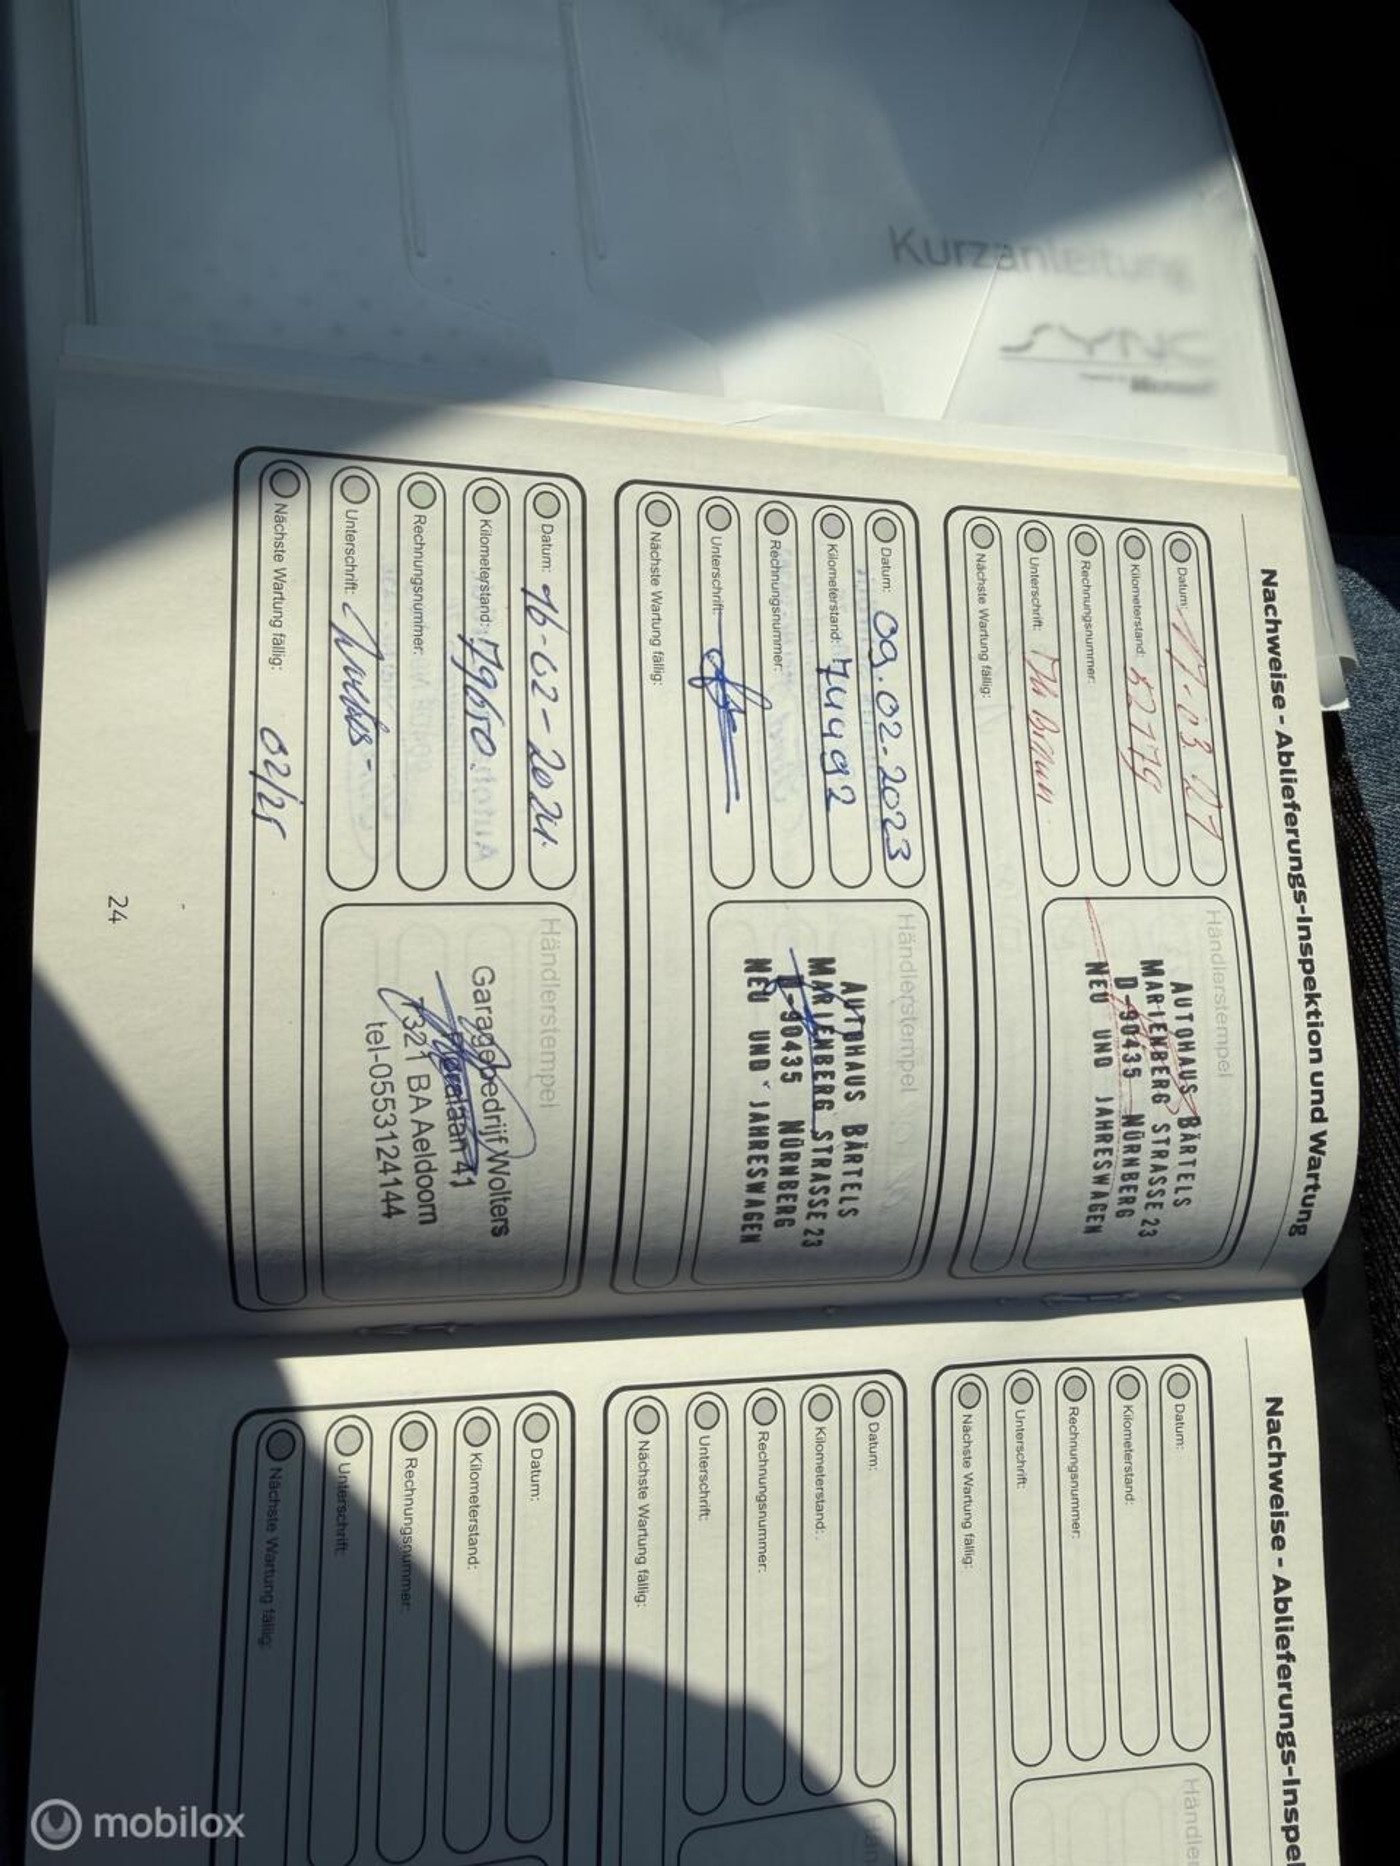 Kurzanleitung
SYNC
Nachweise - Ablieferungs-Inspektion und Wartung
Datum: 17.03.21
Kilometerstand: 52179
Rechnungsnummer:
Unterschrift:
Nächste Wartung fällig:
Händlerstempel
AUTOHAUS BÄRTELS
MARIENBERG STRASSE 23
D-90435 NÜRNBERG
NEU UND JAHRESWAGEN
Datum: 09.02.2023
Kilometerstand: 74492
Rechnungsnummer:
Unterschrift:
Nächste Wartung fällig:
Händlerstempel
AUTOHAUS BÄRTELS
MARIENBERG STRASSE 23
D-90435 NÜRNBERG
NEU UND JAHRESWAGEN
Datum: 16-02-2024
Kilometerstand: 79650.
Rechnungsnummer:
Unterschrift:
Nächste Wartung fällig: 02/25
Händlerstempel
Garagebedrijf Wolters
41
7321 BA Aeldoorn
tel-0553124144
24
Nachweise - Ablieferungs-Inspe
Datum:
Kilometerstand:
Rechnungsnummer:
Unterschrift:
Nächste Wartung fällig:
Händler
Datum:
Kilometerstand:
Rechnungsnummer:
Unterschrift:
Nächste Wartung fällig:
Hän
Datum:
Kilometerstand:
Rechnungsnummer:
Unterschrift:
Nächste Wartung fällig:
mobilox